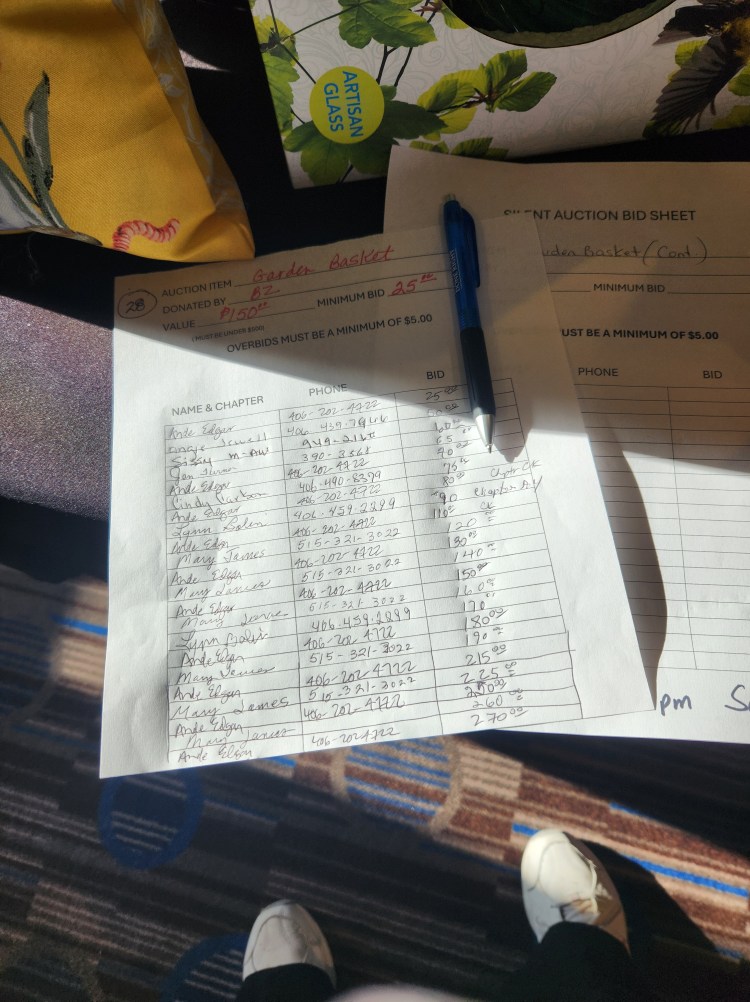 ARTISAN
GLASS
SILENT AUCTION BID SHEET
Garden Basket (Cont)
MINIMUM BID
MUST BE A MINIMUM OF $5.00
PHONE BID
pm
28
AUCTION ITEM Garden Basket
DONATED BY BZ
VALUE $150.00 MINIMUM BID 25.00
(MUST BE UNDER $500)
OVERBIDS MUST BE A MINIMUM OF $5.00
NAME & CHAPTER PHONE BID
Ande Edgar 406-202-4722 25.00
406-439-
Sissy 949-
Jen 390-3361 65
Ande Edgar 406-202-4722 70.00
Cindy 406-490-8399 75
Ande Edgar 406-202-4722 80
Lynn 406-459-2899 90
Ande Edgar 406-202-4722 110
Mary James 515-321-3022 120
Ande Edgar 406-202-4722 130
Mary James 515-321-3022 140
Ande Edgar 406-202-4722 150
Mary James 515-321-3022 160
Lynn 406-459-2899 170
Ande Edgar 406-202-4722 180
Mary James 515-321-3022 190
Ande Edgar 406-202-4722 215
Mary James 515-321-3022 225
Ande Edgar 406-202-4722 250
Mary James 260
Ande Edgar 406-202-4722 270